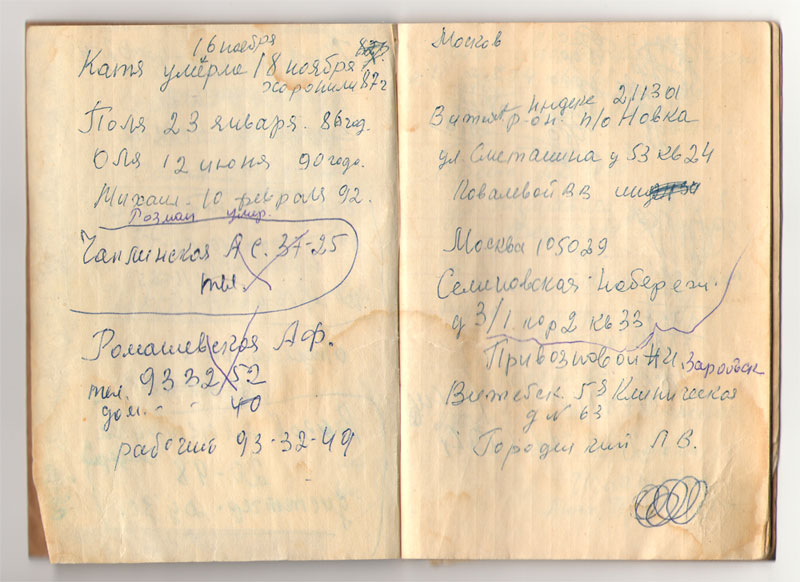 16 ноября
Катя умерла 18 ноября
хоронили 87г
Поля 23 января. 86 год.
Оля 12 июня 90 года.
Михаил - 10 февраля 92.
Розман умер.
Чаплинская А С. 37-25
тел.
Ромашевская А.Ф.
тел. 9332 52
дом. - - 40
рабочий 93-32-49
Москов
индекс 211301
Витеб р-он. п/о Новка
ул. Сметанина д 53 кв 24
Ковалевой В В
Москва 105039
Семеновская набережн.
д 3/1. кор 2 кв 33
Привозновой Н И.
Витебск 5я Клиническая
д № 63
Городецкий Л. В.